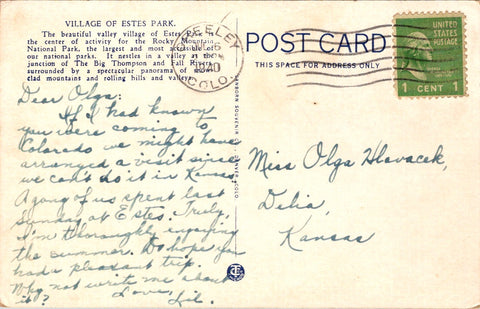 VILLAGE OF ESTES PARK.
The beautiful valley village of Estes
the center of activity for the Rocky Mountain
National Park, the largest and most accessible of
our national parks. It nestles in a valley at the
junction of The Big Thompson and Fall Rivers
surrounded by a spectacular panorama of
clad mountains and rolling hills and valleys.
GREELEY
1940
COLO.
POST CARD
THIS SPACE FOR ADDRESS ONLY
UNITED
STATES
POSTAGE
1 CENT 1
Dear Olga:
If I had known
you were coming to
Colorado we might have
arranged a visit since
we can't do it in Kansas.
A gang of us spent last
Sunday at Estes. Truly,
I'm thoroughly enjoying
the summer. Do hope you
had a pleasant trip.
Why not write me about
it?
Love,
Lil.
Miss Olga Hlavacek,
Delia,
Kansas